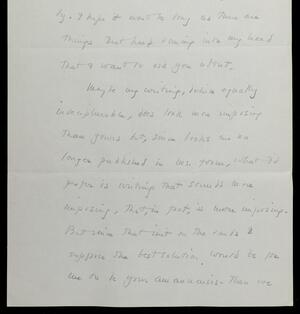 by. I hope it won't be long as there are
things that keep coming into my head
that I want to ask you about.
Maybe my writing, while equally
indecipherable, does look more imposing
than yours but, since looks are no
longer published in ms. form, what I'd
prefer is writing that sounds more
imposing, that, in fact, is more imposing.
But since that isn't in the cards I
suppose the best solution would be for
me to be your amanuensis. Then we